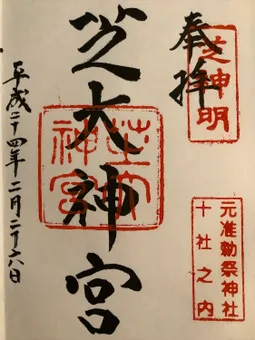 奉拝
芝神明
元准勅祭神社
十社之内
芝大神宮
芝大神宮
平成二十四年二月二十六日